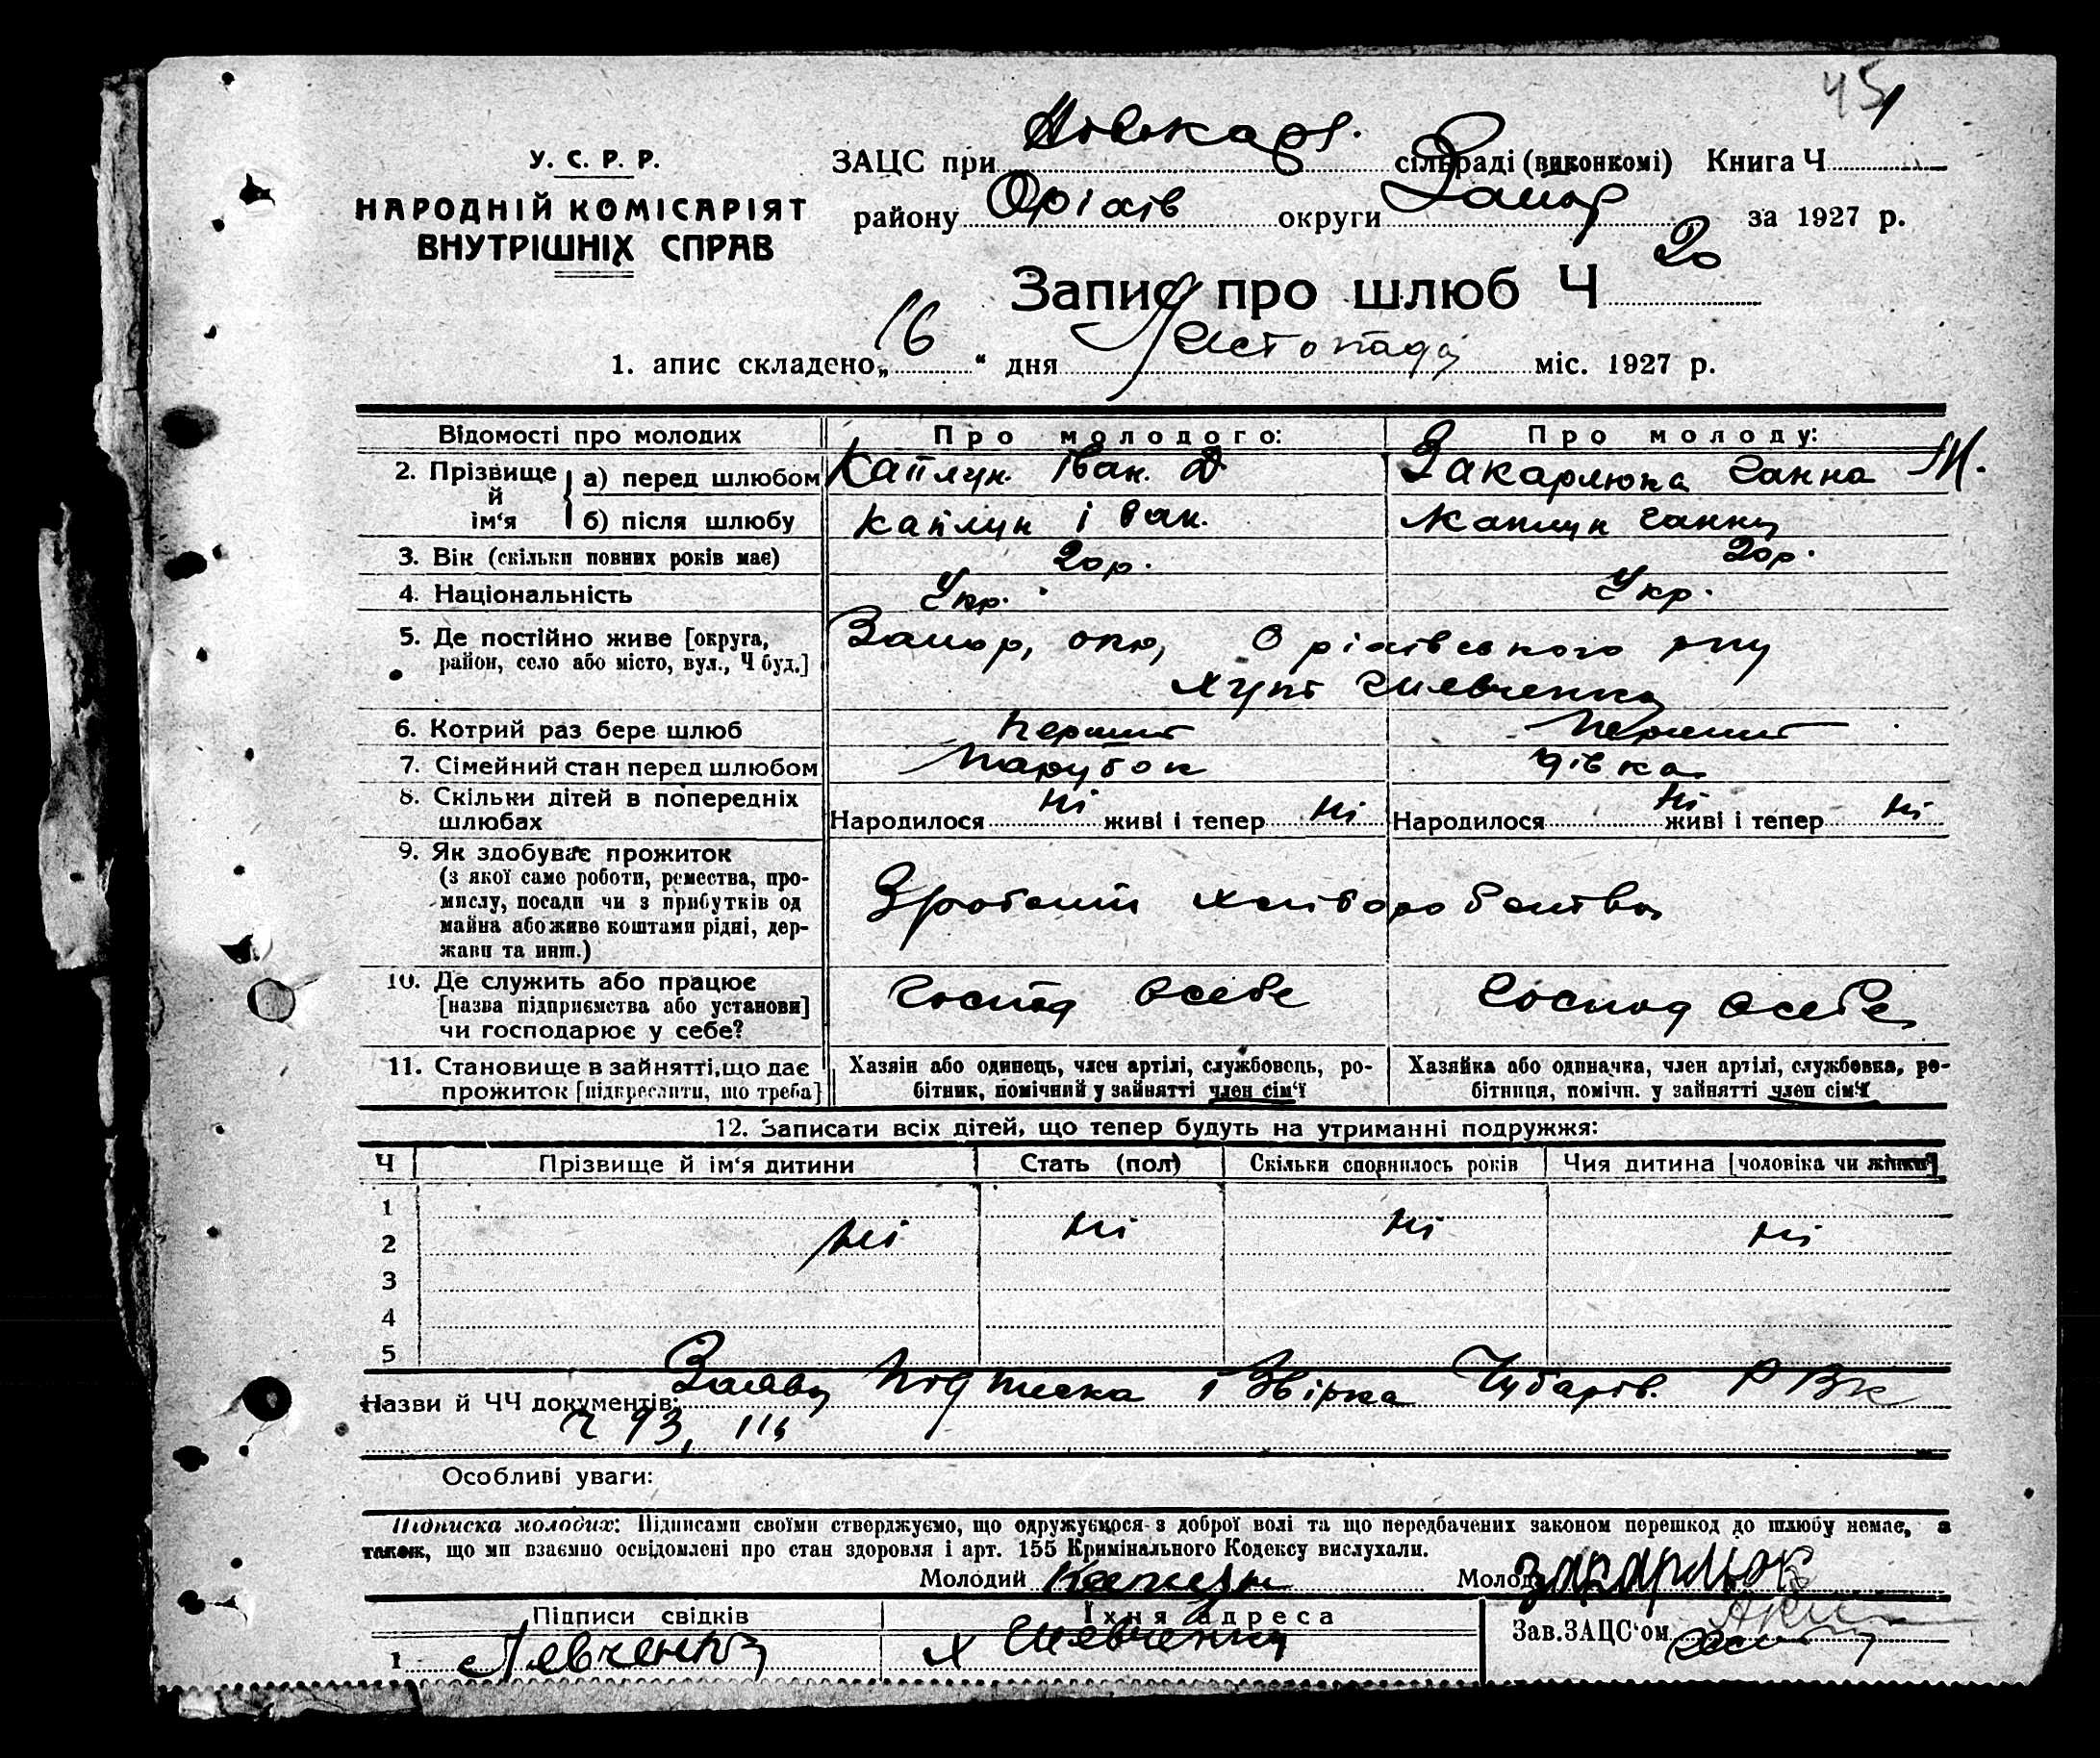 45
У. С. Р. Р.
НАРОДНІЙ КОМІСАРІЯТ
ВНУТРІШНІХ СПРАВ
ЗАЦС при Новокарл. сільраді (виконкомі) Книга Ч
району Оріхів округи Запор за 1927 р.
Запис про шлюб Ч 20
1. апис складено „16“ дня Листопада міс. 1927 р.
Відомості про молодих Про молодого: Про молоду:
2. Прізвище й ім‘я а) перед шлюбом Каплун Іван. Д Закарлюка Ганна М.
б) після шлюбу Каплун Іван. Каплун Ганна
3. Вік (скільки повних років має) 20р. 20р.
4. Національність Укр. Укр.
5. Де постійно живе [округа, Запор, окр, Оріхівського р-ну
район, село або місто, вул., Ч буд.] хут Шевченка
6. Котрий раз бере шлюб Перший Перший
7. Сімейний стан перед шлюбом Парубок Дівка
8. Скільки дітей в попередніх
шлюбах Народилося Ні живі і тепер Ні Народилося Ні живі і тепер Ні
9. Як здобуває прожиток
(з якої саме роботи, ремества, про-
мислу, посади чи з прибутків од
майна або живе коштами рідні, дер-
жави та инш.)
хліборобства
10. Де служить або працює
[назва підприємства або установи]
чи господарює у себе?
Господ Осебе Господ Осебе
11. Становище в зайнятті, що дає Хазяін або одинець, член артілі, службовець, ро- Хазяйка або одиначка, член артілі, службовка, ро-
прожиток [підкреслити, що треба] бітник, помічний у зайнятті член сім‘ї бітниця, помічн. у зайнятті член сім‘ї
12. Записати всіх дітей, що тепер будуть на утриманні подружжя:
Ч Прізвище й ім‘я дитини Стать (пол) Скільки сповнилось років Чия дитина [чоловіка чи жінки]
1
2 Ні Ні Ні Ні
3
4
5
Назви й ЧЧ документів: Заява Підписка і Звірка Чубарів. РВК
Ч 93,
Особливі уваги:
Підписка молодих: Підписами своїми стверджуємо, що одружуємося з доброї волі та що передбачених законом перешкод до шлюбу немає, а
також, що ми взаємно освідомлені про стан здоровля і арт. 155 Кримінального Кодексу вислухали.
Молодий Каплун Молод Закарлюк
Підписи свідків Їхня адреса Зав. ЗАЦС‘ом
1 Левченко х Шевченка